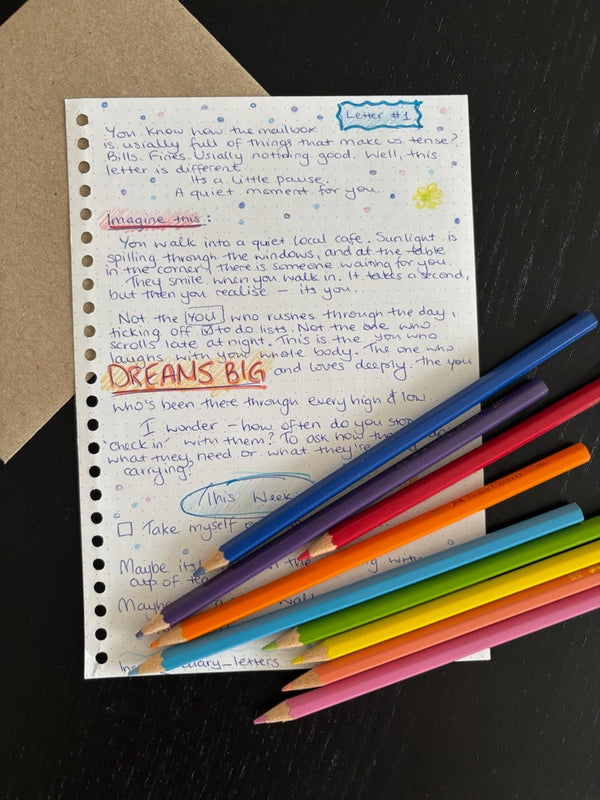 Letter #1
You know how the mailbox
is usially full of things that make us tense?
Bills. Fines. Usially nothing good. Well, this
letter is different.
Its a little pause.
A quiet moment for you.
Imagine this:
You walk into a quiet local cafe. Sunlight is
spilling through the windows, and at the table
in the corner, there is someone waiting for you
They smile when you walk in. It takes a second,
but then you realise - its you..
Not the you who rushes through the day,
ticking off ☑ to do lists. Not the one who
scrolls late at night. This is the you who
laughs with your whole body. The one who
DREAMS BIG and loves deeply. The you
who's been there through every high & low.
I wonder - how often do you stop
'check in' with them? To ask how
what they need or what they're
carrying?
This Week
☐ Take myself
Maybe its with
cup of tea
Maybe a